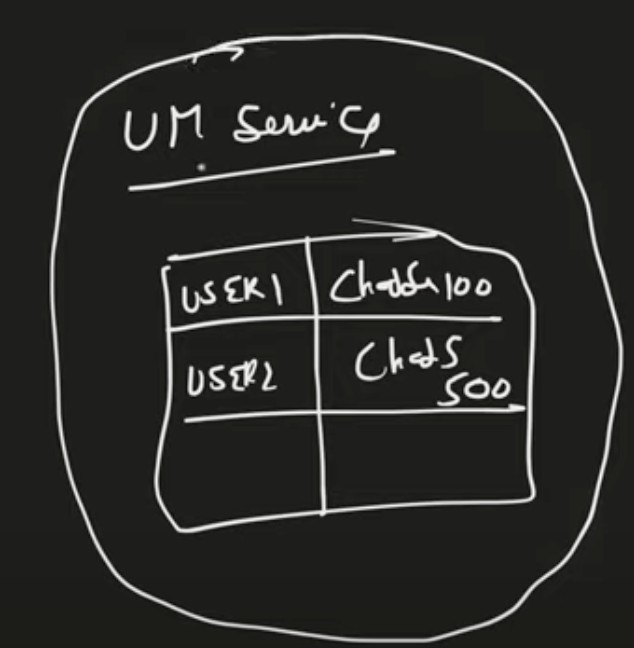 UM Service
USER1 100
USER2 ChatS
500